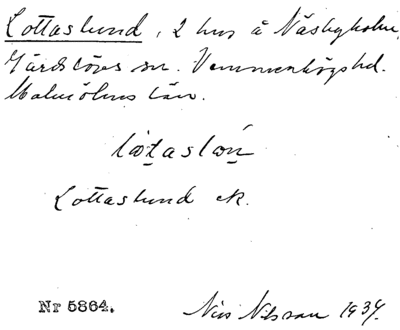 Lottaslund, 2 hus å Näsbyholm,
Gärdslövs sn. Vemmenhögs hd.
Malmöhus län.
Lottaslund ek.
Nr 5864. Nils Nilsson 1934.